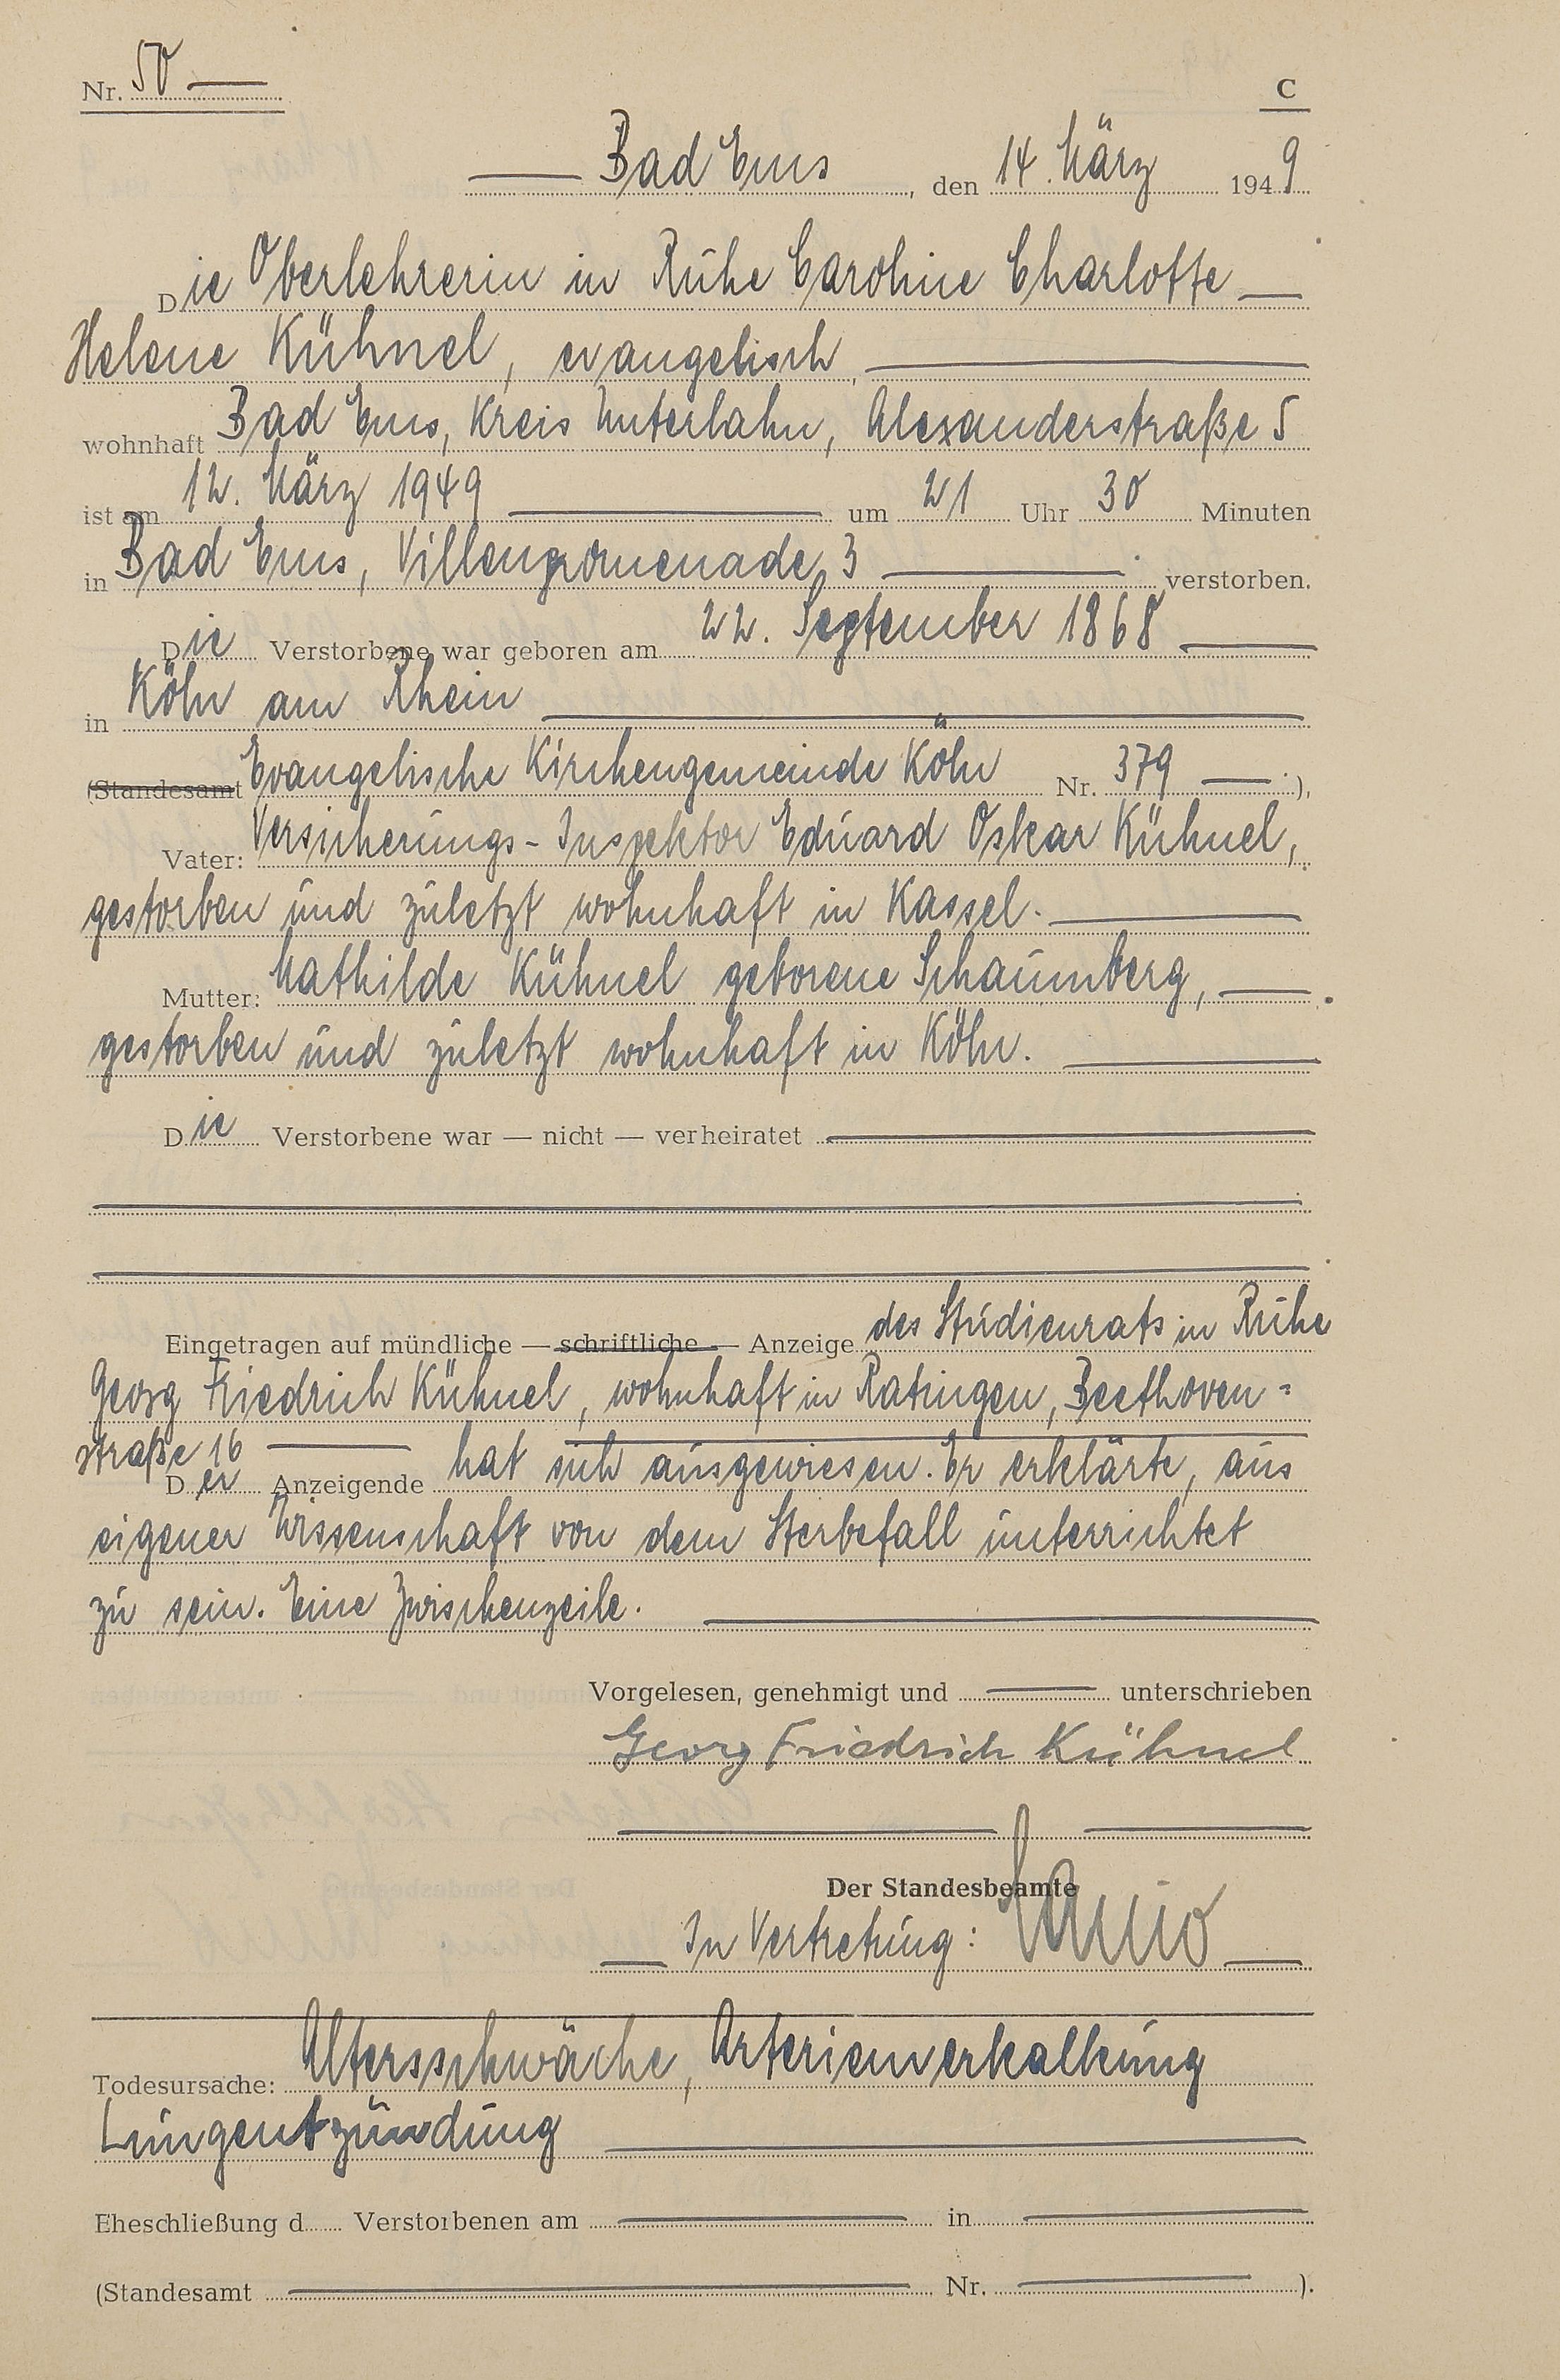 Nr. 50 —
C
— Bad Ems, den 14. März 1949
Die Oberlehrerin in Ruhe Caroline Charlotte —
Helene Kühnel, evangelisch, —
wohnhaft Bad Ems, Kreis Unterlahn, Alexanderstraße 5
ist am 12. März 1949 — um 21 Uhr 30 Minuten
in Bad Ems, Villenpromenade 3 — verstorben.
Die Verstorbene war geboren am 22. September 1868 —
in Köln am Rhein —
(Standesamt Evangelische Kirchengemeinde Köln Nr. 379 —),
Vater: Versicherungs-Inspektor Eduard Oskar Kühnel,
gestorben und zuletzt wohnhaft in Kassel. —
Mutter: Mathilde Kühnel geborene Schaumberg, —
gestorben und zuletzt wohnhaft in Köln. —
Die Verstorbene war — nicht — verheiratet —
Eingetragen auf mündliche — schriftliche — Anzeige des Studienrats in Ruhe
Georg Friedrich Kühnel, wohnhaft in Ratingen, Beethoven=
straße 16 —
Der Anzeigende hat sich ausgewiesen. Er erklärte, aus
eigener Wissenschaft von dem Sterbefall unterrichtet
zu sein. Eine Zwischenzeile. —
Vorgelesen, genehmigt und — unterschrieben
Georg Friedrich Kühnel
Der Standesbeamte
— In Vertretung: —
Todesursache: Altersschwäche, Arterienverkalkung
Lungentzündung —
Eheschließung d Verstorbenen am — in —
(Standesamt — Nr. —).